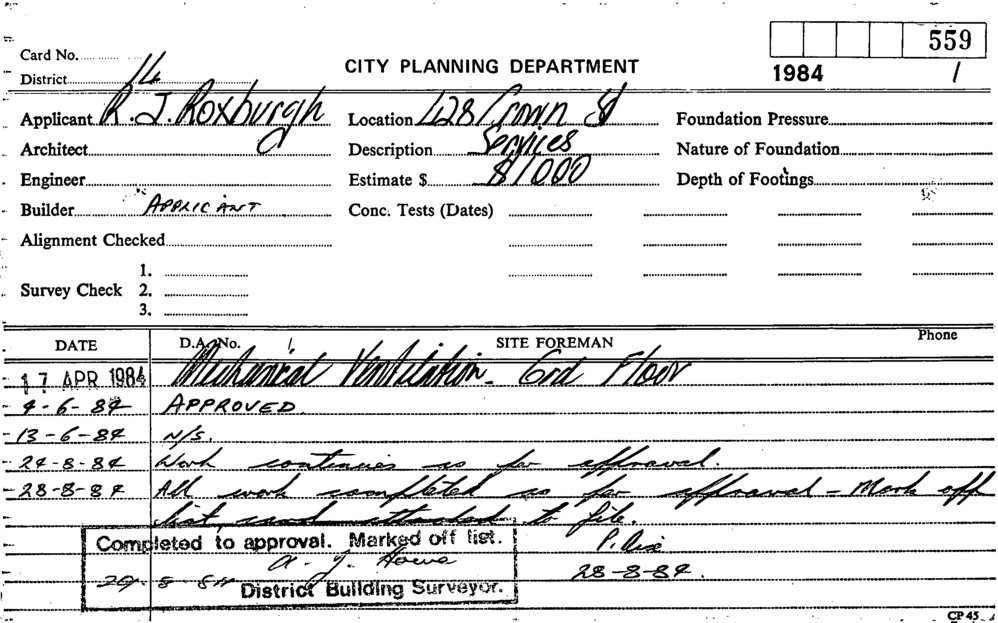 559
Card No.
CITY PLANNING DEPARTMENT
1984 1
District 14
Applicant R. J. Roxburgh Location 428 Crown St Foundation Pressure
Architect Description Services Nature of Foundation
Engineer Estimate $ $1000 Depth of Footings
Builder APPLICANT Conc. Tests (Dates)
Alignment Checked
1.
Survey Check 2.
3.
DATE D.A. No. SITE FOREMAN Phone
17 APR 1984 Mechanical Ventilation - Grd Floor
4-6-84 APPROVED.
13-6-84 N/S.
24-8-84 Work continues as per approval.
28-8-84 All work completed as per approval - Mark off
list, card attached to file.
Completed to approval. Marked off list. P.
A. J. Howe 28-8-84.
29-8-84 District Building Surveyor.
CP 45